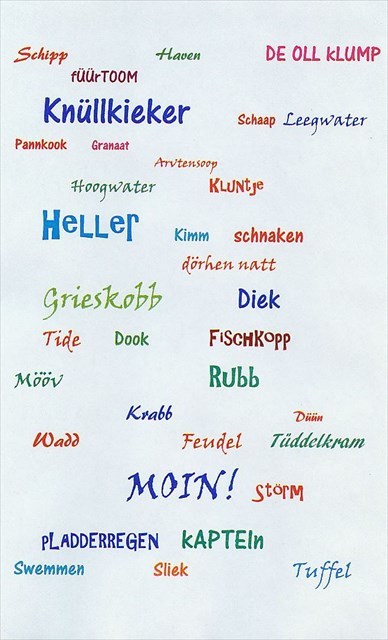 Schipp Haven DE OLL KLUMP
füürtoom
Knüllkieker Schaap Leegwater
Pannkook Granaat
Arvtensoop
Hoogwater Kluntje
Heller Kimm schnaken
dörhen natt
Grieskobb Diek
Tide Dook Fischkopp
Mööv Rubb
Krabb Düün
Wadd Feudel Tüddelkram
MOIN! Storm
pLADDERREGEN KAPTEIn
Swemmen Sliek Tuffel